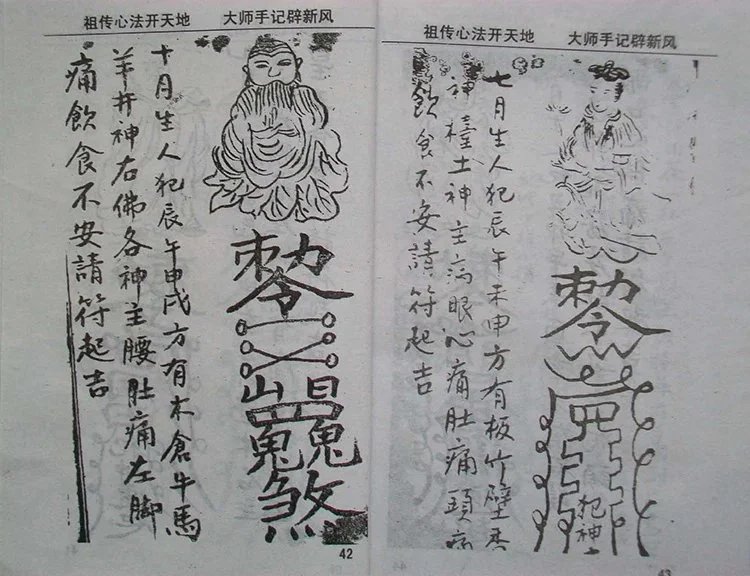 祖传心法开天地 大师手记辟新风
十月生人犯辰午申戌方有木倉牛馬
羊井神右佛各神主腰肚痛左脚
痛飲食不安請符起吉
敕令
山日
鬼鬼
煞
42
祖传心法开天地 大师手记辟新风
七月生人犯辰午未申方有板竹壁香
神土神主病眼沁痛肚痛頭病
飲食不安請符起吉
敕令
犯神土
43